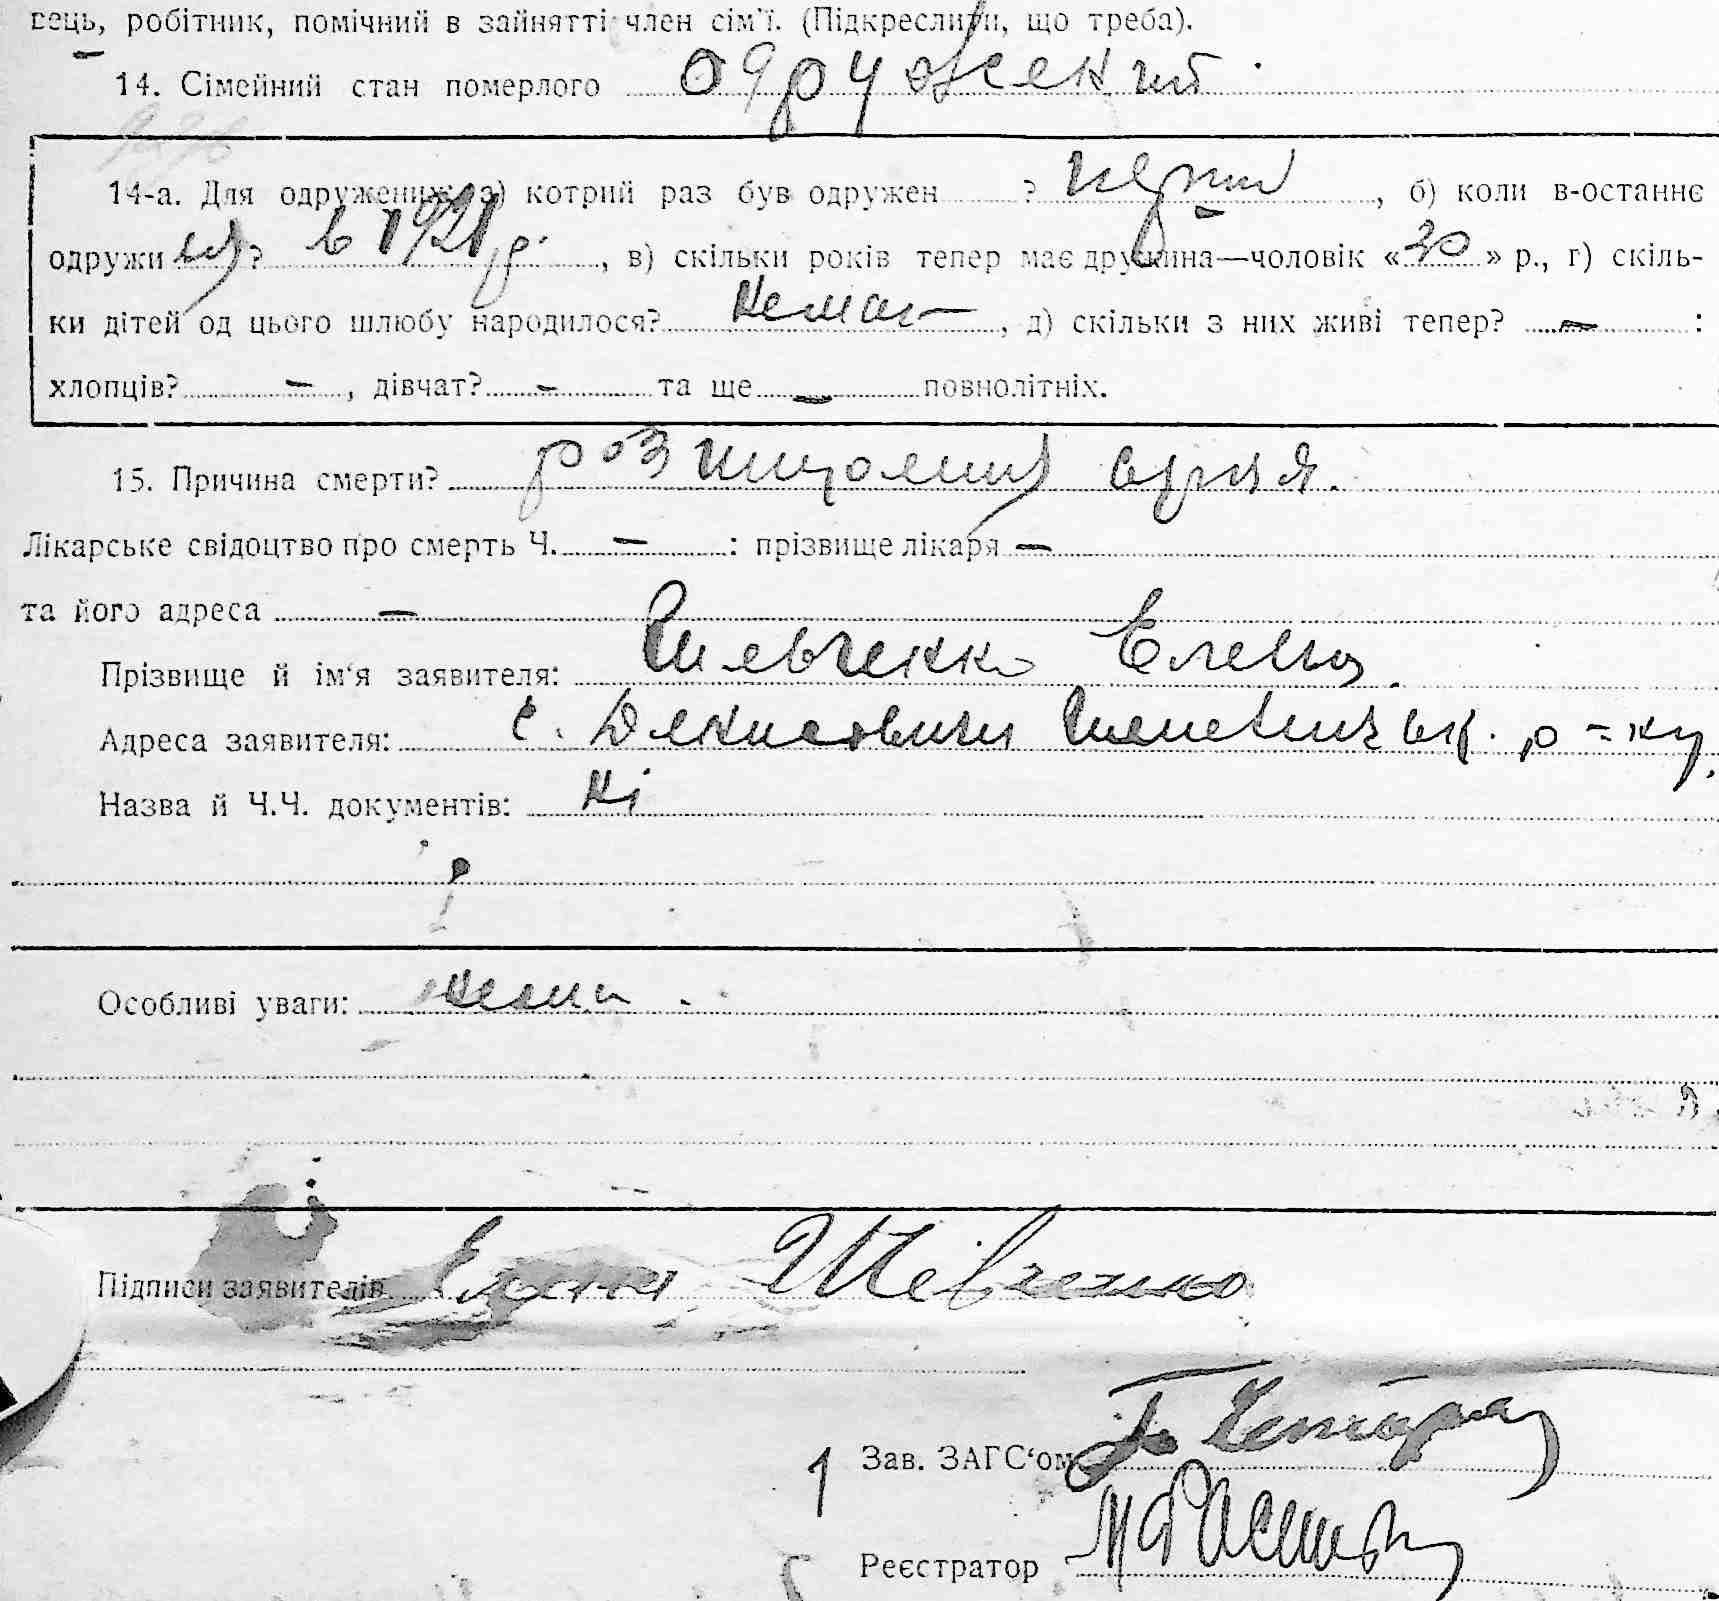 вець, робітник, помічний в зайнятті член сім'ї. (Підкреслити, що треба).
14. Сімейний стан померлого одружений.
14-а. Для одружених: а) котрий раз був одружен ? перший, б) коли в-останнє
одружився? в 1921 р., в) скільки років тепер має дружина—чоловік «30» р., г) скіль-
ки дітей од цього шлюбу народилося? немає, д) скільки з них живі тепер? – :
хлопців? – , дівчат? – та ще – повнолітніх.
15. Причина смерти?
Лікарське свідоцтво про смерть Ч. – : прізвище лікаря –
та його адреса –
Прізвище й ім'я заявителя: Шевченко Елена.
Адреса заявителя: с. р=ку,
Назва й Ч.Ч. документів: Ні
Особливі уваги: нема
Підписи заявителів Елена Шевченко
Зав. ЗАГС'ом
Реєстратор